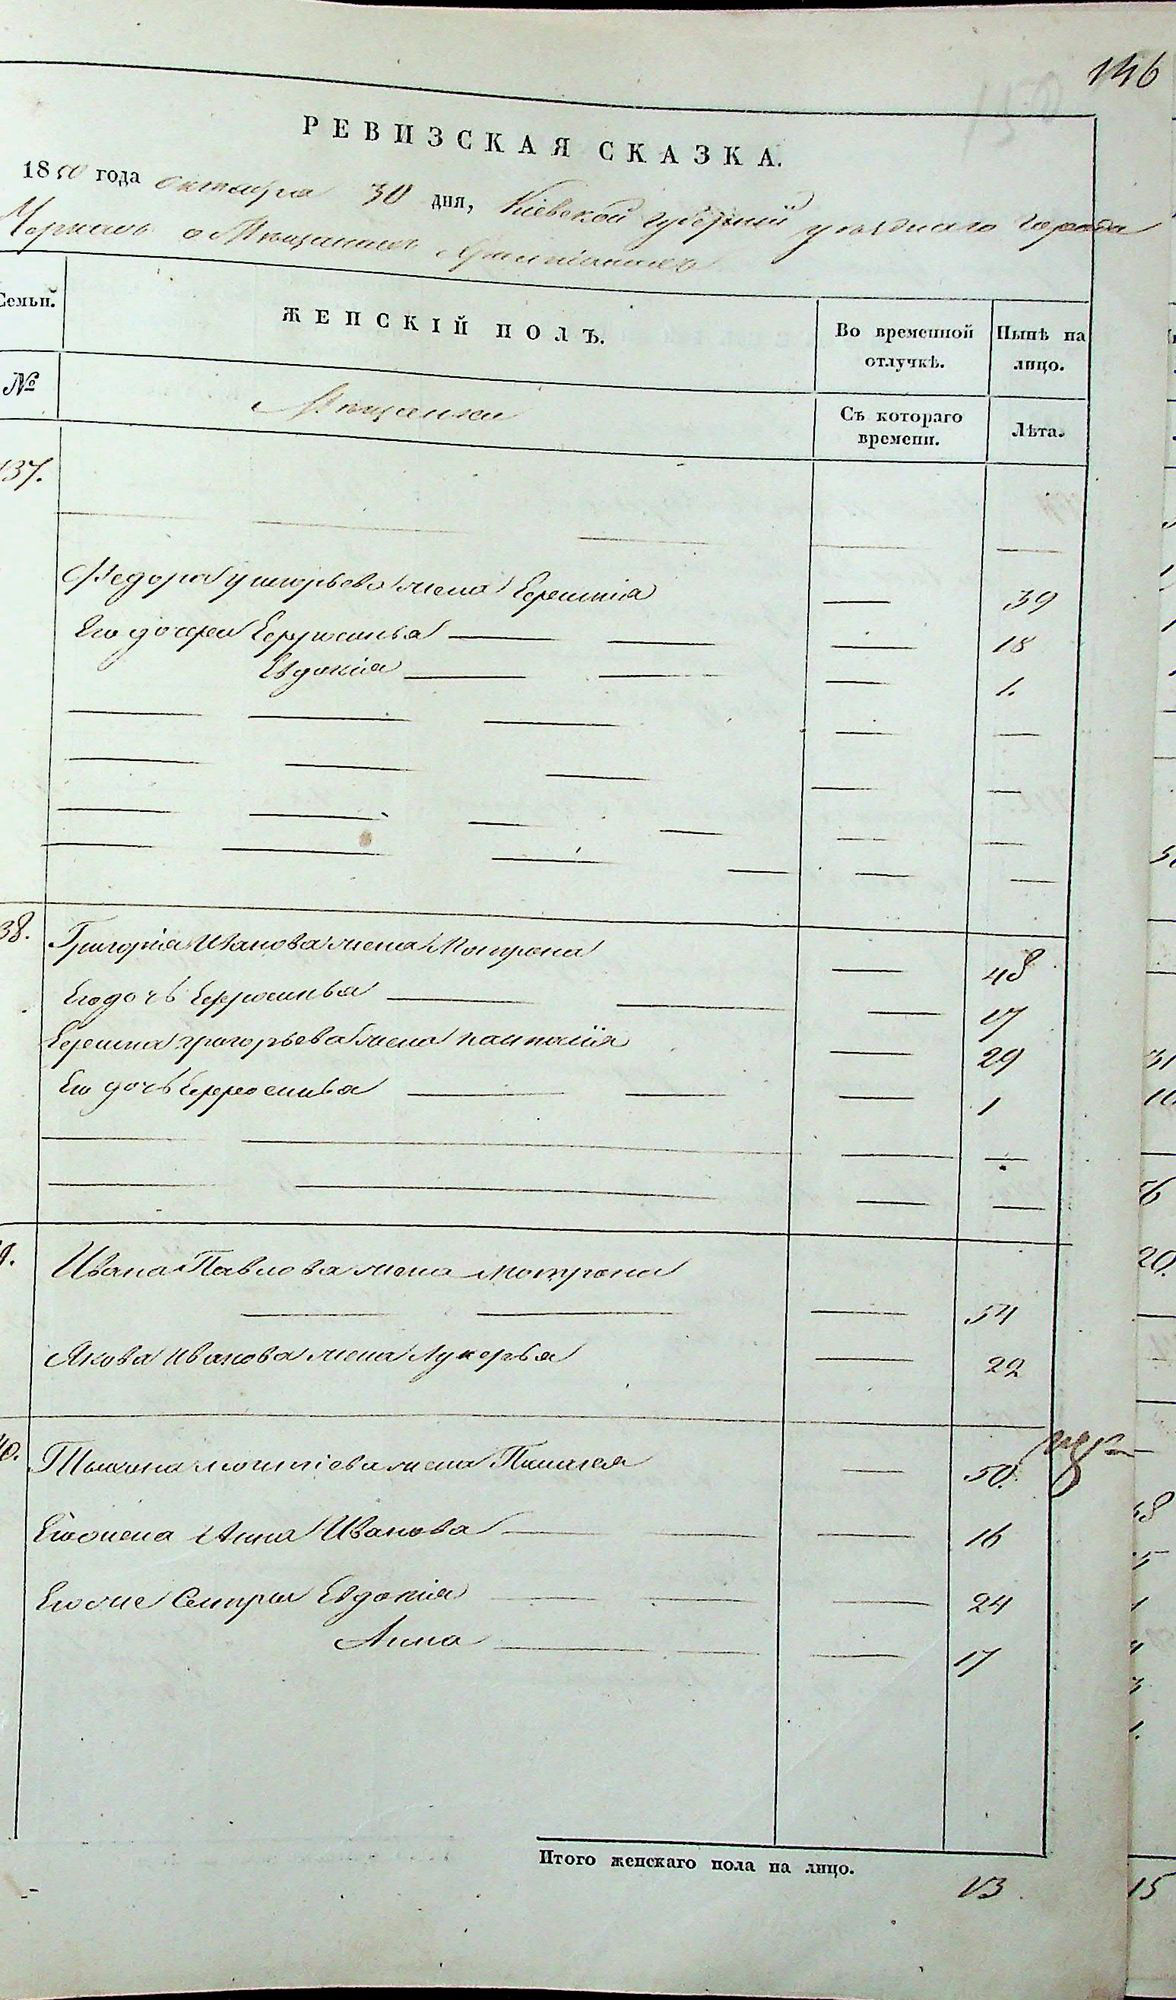 146
РЕВИЗСКАЯ СКАЗКА.
1850 года октября 30 дня, Кіевской губерніи уезднаго города
о Мещанахъ Христіанахъ
Семьи. ЖЕНСКІЙ ПОЛЪ. Во временной отлучкѣ. Нынѣ на лицо.
№ Мещанки Съ котораго времени. Лѣта.
137.
Федора жена 39
Его дочери Ефросинья 18
Евдокія 1.
38. Григорія Иванова жена Мотрона 48
Его дочь Ефросинья 17
Григорьева жена 29
Его дочь Ефросинья 1
Ивана Павлова жена Мотрона
54
Якова Иванова жена Лукерья 22
40. жена Пелагея 50.
Его жена Анна Иванова 16
Его же Сестры Евдокія 24
Анна 17
Итого женскаго пола на лицо.
13
15